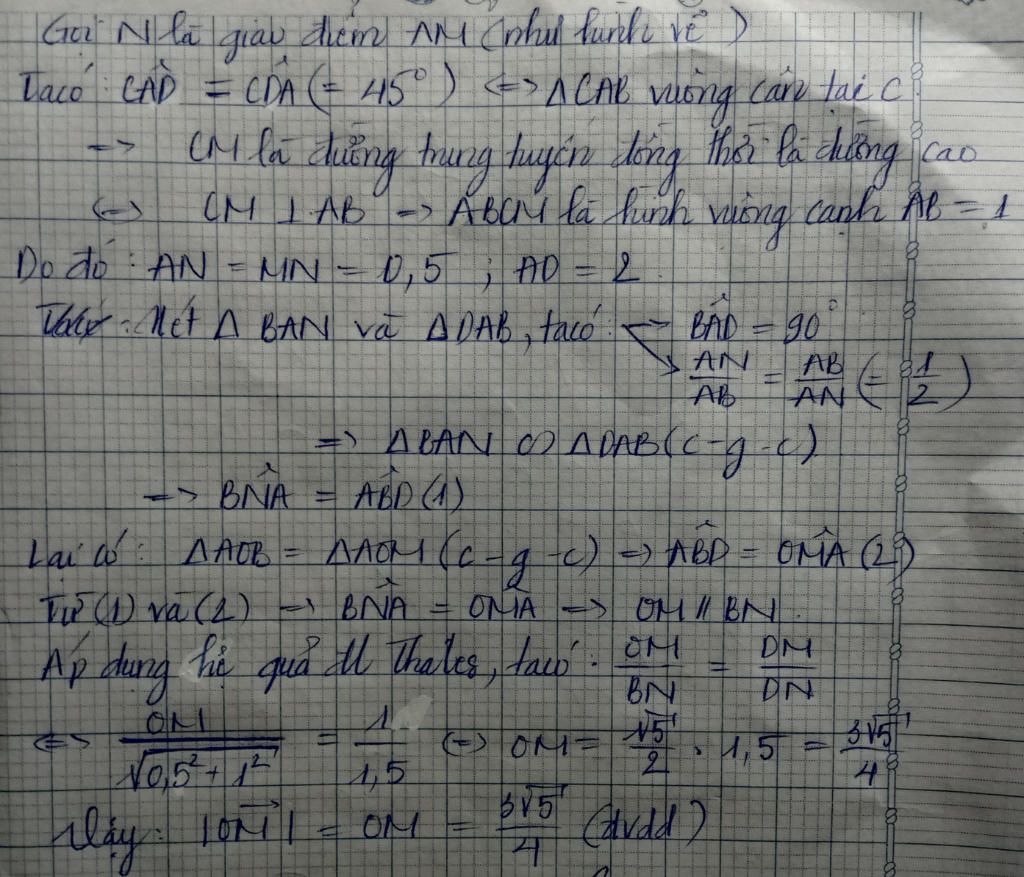 Gọi N là giao điểm AM (như hình vẽ)
Ta có: CÂD = CD̂A (= 45°) <=> ΔCAB vuông cân tại C
=> CM là đường trung tuyến đồng thời là đường cao
<=> CM ⊥ AB => ABCM là hình vuông cạnh AB = 1
Do đó: AN = MN = 0,5 ; AD = 2
Xét Δ BAN và Δ DAB, ta có: BÂD = 90°
AN/AB = AB/AN (= 1/2)
=> Δ BAN ∽ Δ DAB (c-g-c)
=> BN̂A = AB̂D (1)
Lại có: ΔAOB = ΔAOM (c-g-c) => AB̂D = OM̂A (2)
Từ (1) và (2) => BN̂A = OM̂A => OM // BN.
Áp dụng hệ quả đl Thales, ta có: OM/BN = DM/DN
<=> OM/√(0,5²+1²) = 1/1,5 <=> OM = √5/2 . 1,5 = 3√5/4
Vậy: |OM→| = OM = 3√5/4 (đvđd)